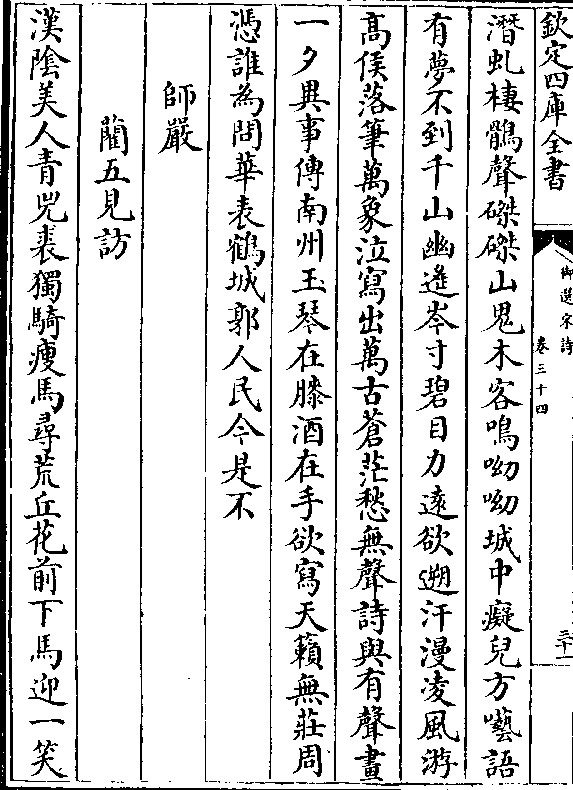 欽定四庫全書
御選宋詩
卷三十四
三十一
潛虬棲鶻聲磔磔山鬼木客鳴呦呦城中癡兒方囈語
有夢不到千山幽遥岑寸碧目力遠欲遡汗漫凌風游
高侯落筆萬象泣寫出萬古蒼茫愁無聲詩與有聲畫
一夕異事傳南州玉琴在膝酒在手欲寫天籟無莊周
憑誰為問華表鶴城郭人民今是不
師嚴
藺五見訪
漢陰美人青兕裘獨騎瘦馬尋荒丘花前下馬迎一笑